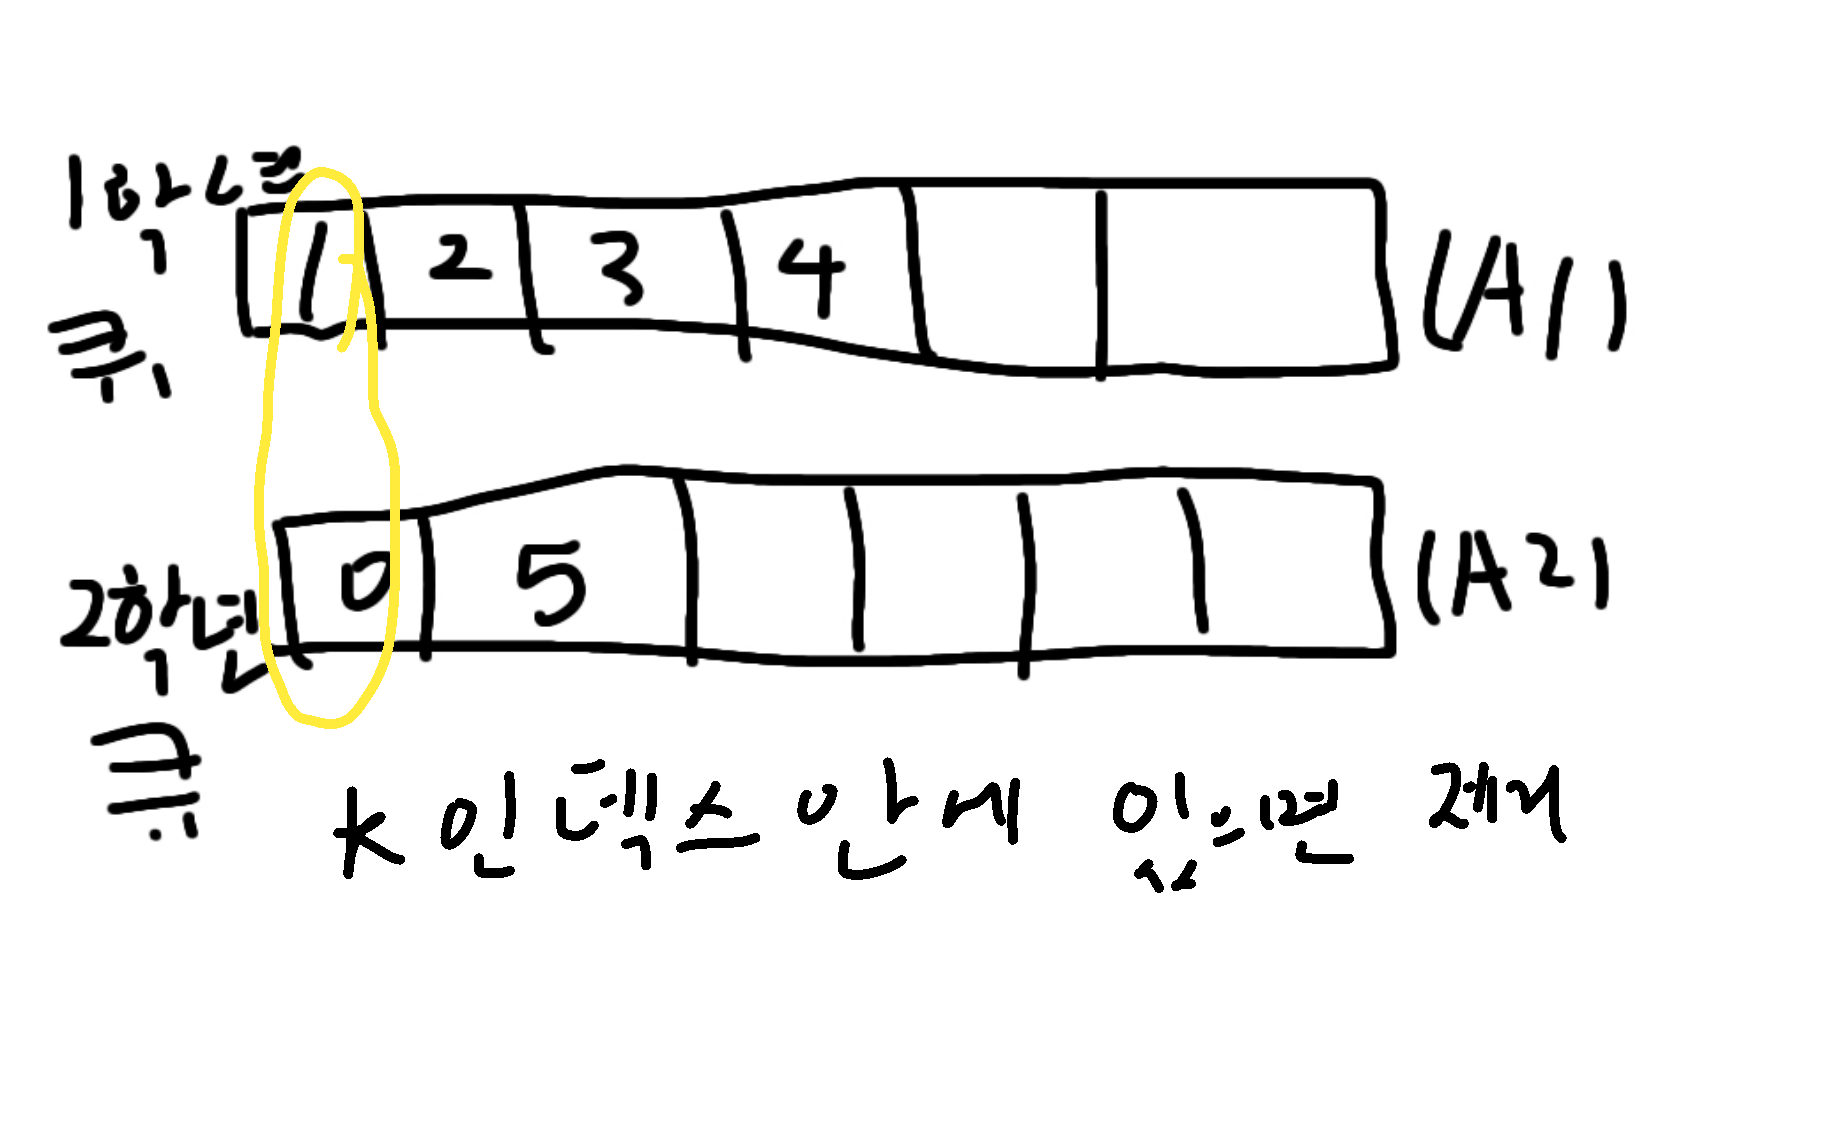 1학년
큐
1 2 3 4
(A1)
2학년
큐
0 5
(A2)
K 인덱스 안에 있으면 제거